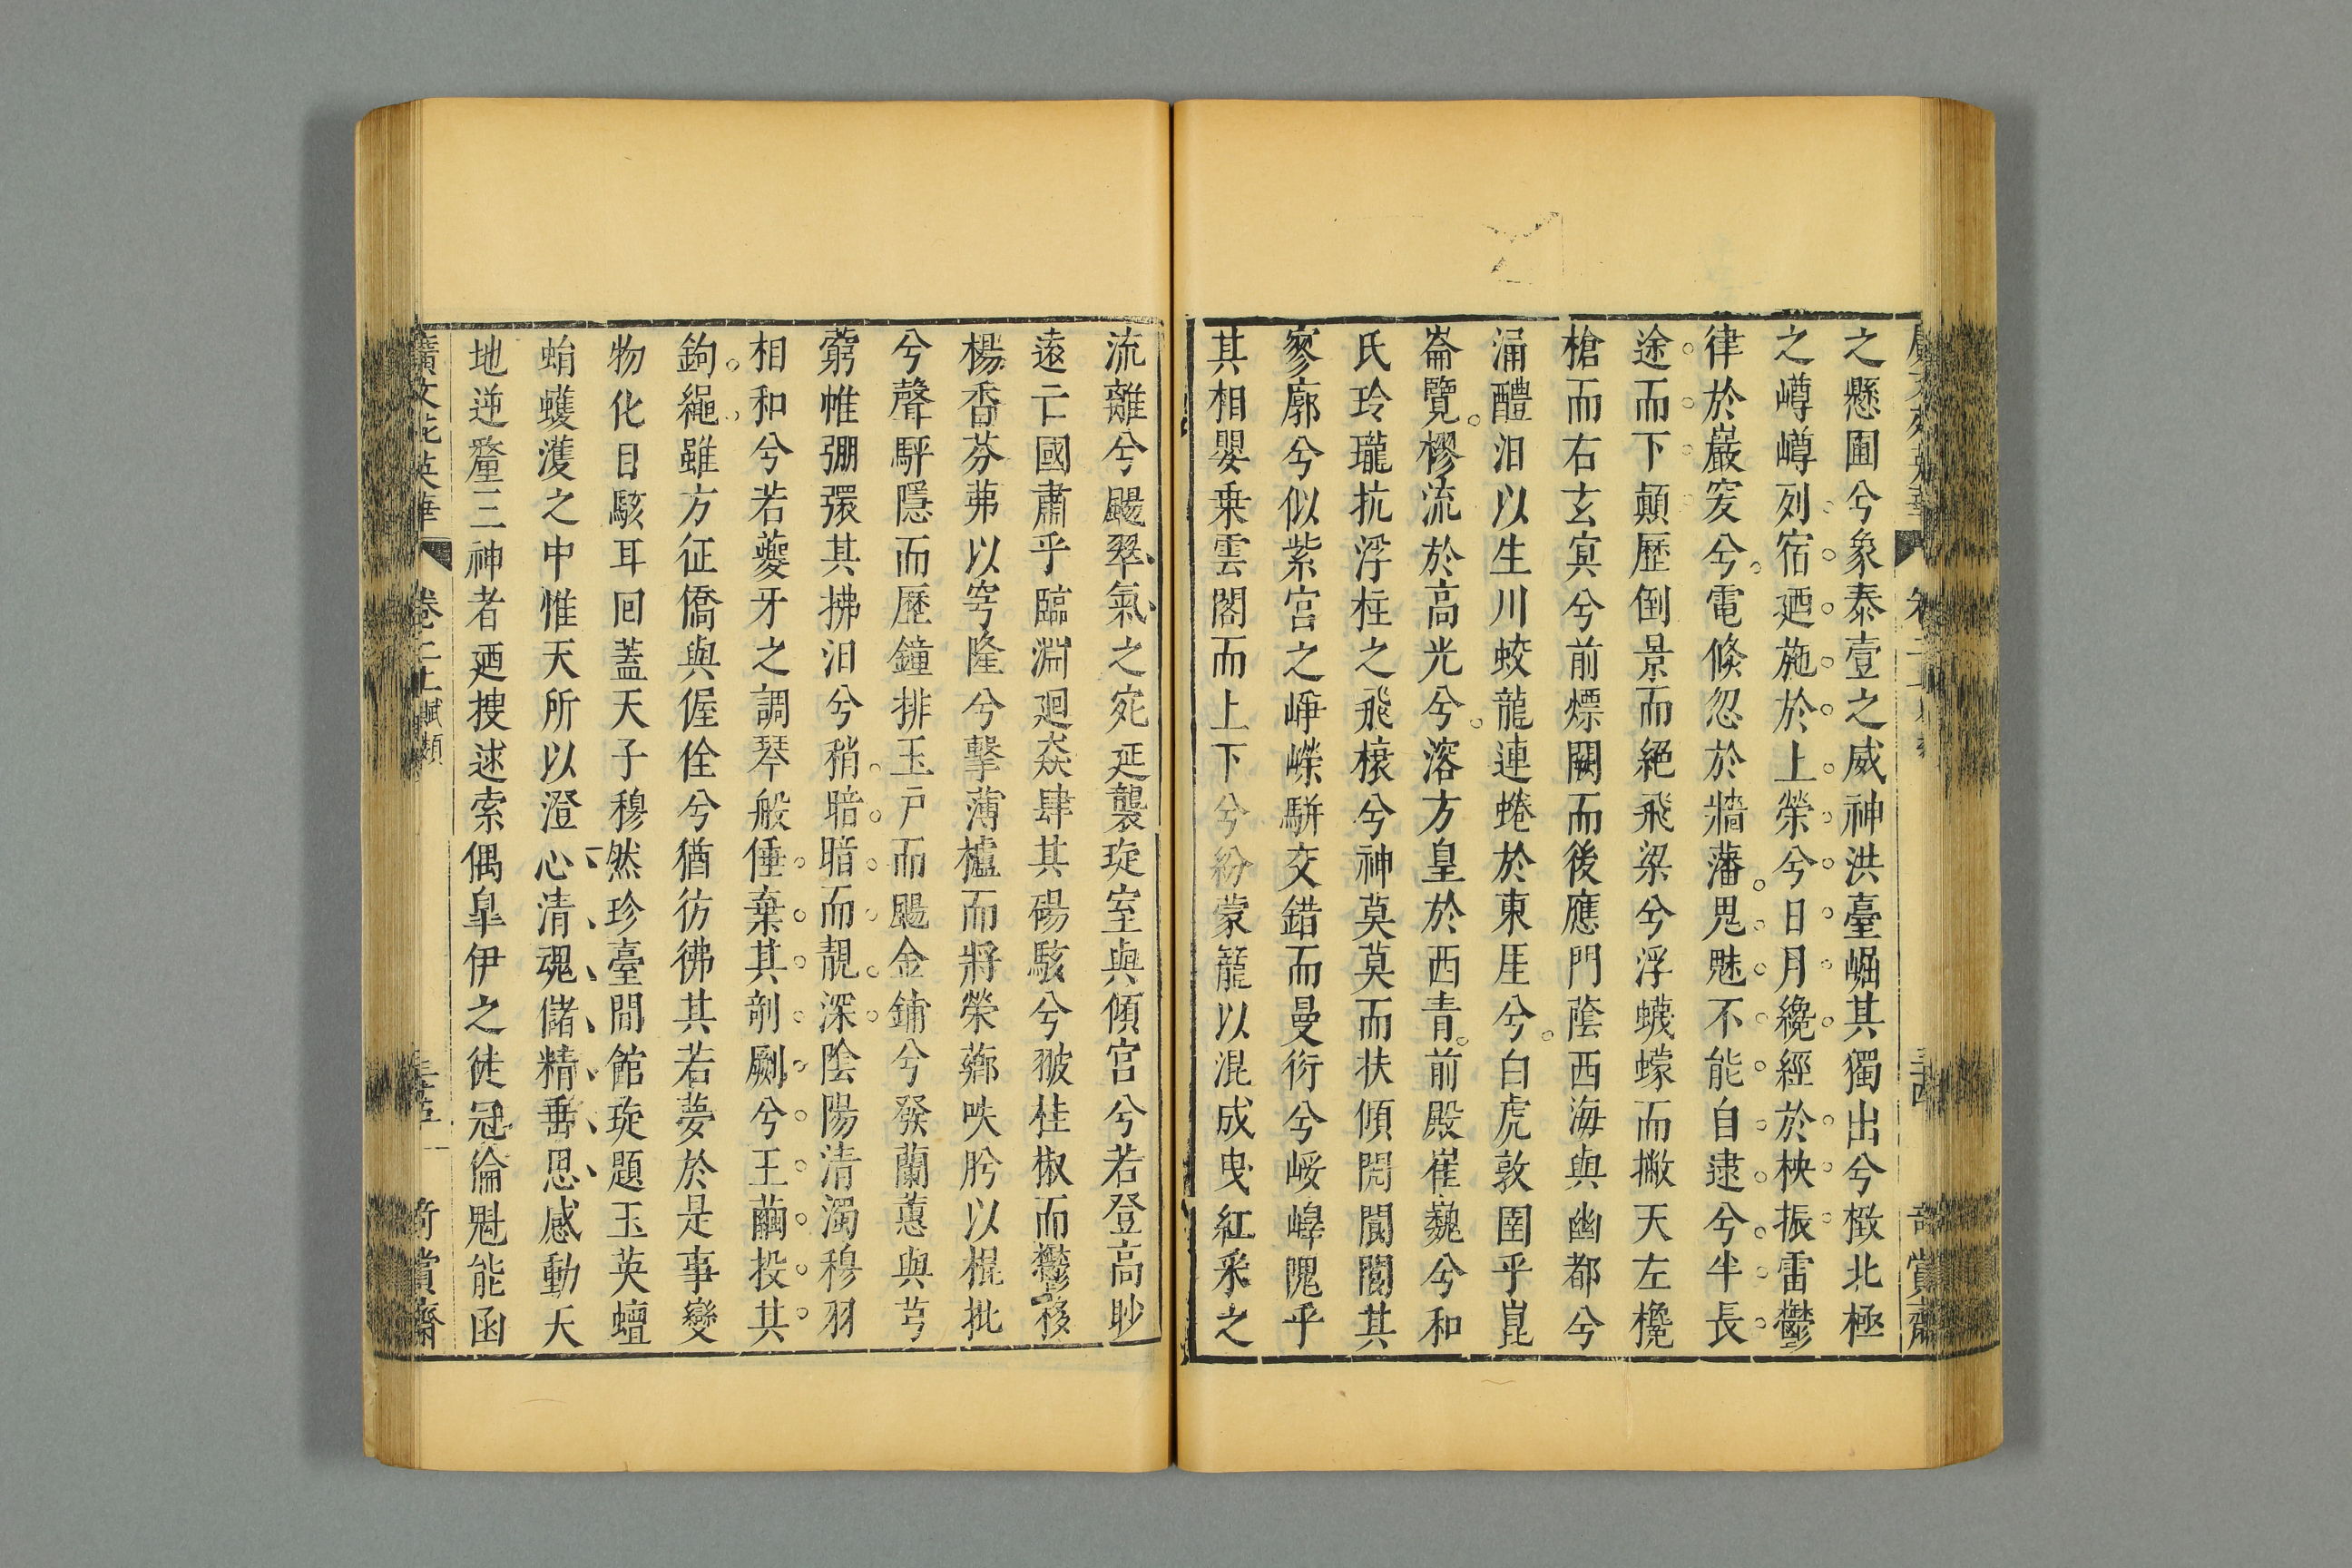 之懸圃兮象泰壹之威神洪臺崛其獨出兮㨖北極
之嶟嶟列宿廼施於上榮兮日月纔經於柍振雷鬱
律於巖窔兮電倏忽於牆藩鬼魅不能自逮兮半長
途而下顛歷倒景而絕飛梁兮浮蠛蠓而撇天左欃
槍而右玄㝠兮前熛闕而後應門蔭西海與幽都兮
涌醴汨以生川蛟龍連蜷於東厓兮白虎敦圉乎崑
崙覽樛流於高光兮溶方皇於西青前殿崔巍兮和
氏玲瓏抗浮柱之飛榱兮神莫莫而扶傾閌閬閬其
寥廓兮似紫宮之崢嶸騈交錯而曼衍兮㟎嶵隗乎
其相嬰乗雲閣而上下兮紛蒙籠以混成曳紅采之
流離兮颺翠氣之宛延襲琁室與傾宮兮若登高眇
遠亡國肅乎臨淵廻猋肆其碭駭兮翍桂椒而鬱栘
楊香芬茀以穹隆兮擊薄櫨而將榮薌呹肸以棍批
兮聲駍隱而歷鐘排玉戶而颺金鋪兮發蘭蕙與芎
藭帷弸彋其拂汨兮稍暗暗而靚深陰陽清濁穆羽
相和兮若夔牙之調琴般倕棄其剞劂兮王薾投其
鉤繩雖方征僑與偓佺兮猶彷彿其若夢於是事變
物化目駭耳回蓋天子穆然珍臺閒館琁題玉英蟺
蜎蠖濩之中惟天所以澄心清魂儲精垂思感動天
地逆釐三神者廼搜逑索偶臯伊之徒冠倫魁能函
廣文苑英華 卷二上 賦類 三五 奇賞齋